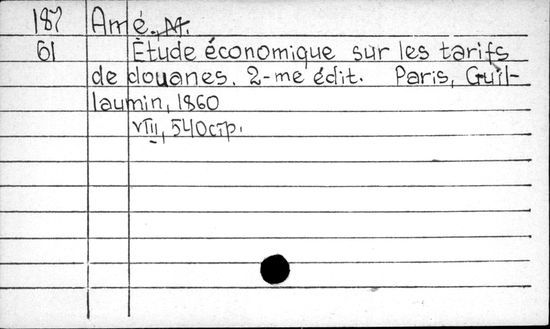 187 Amé, M.
61 Étude économique sur les tarifs
de douanes. 2-me édit. Paris, Guil-
laumin, 1860
VIII, 540 стр.